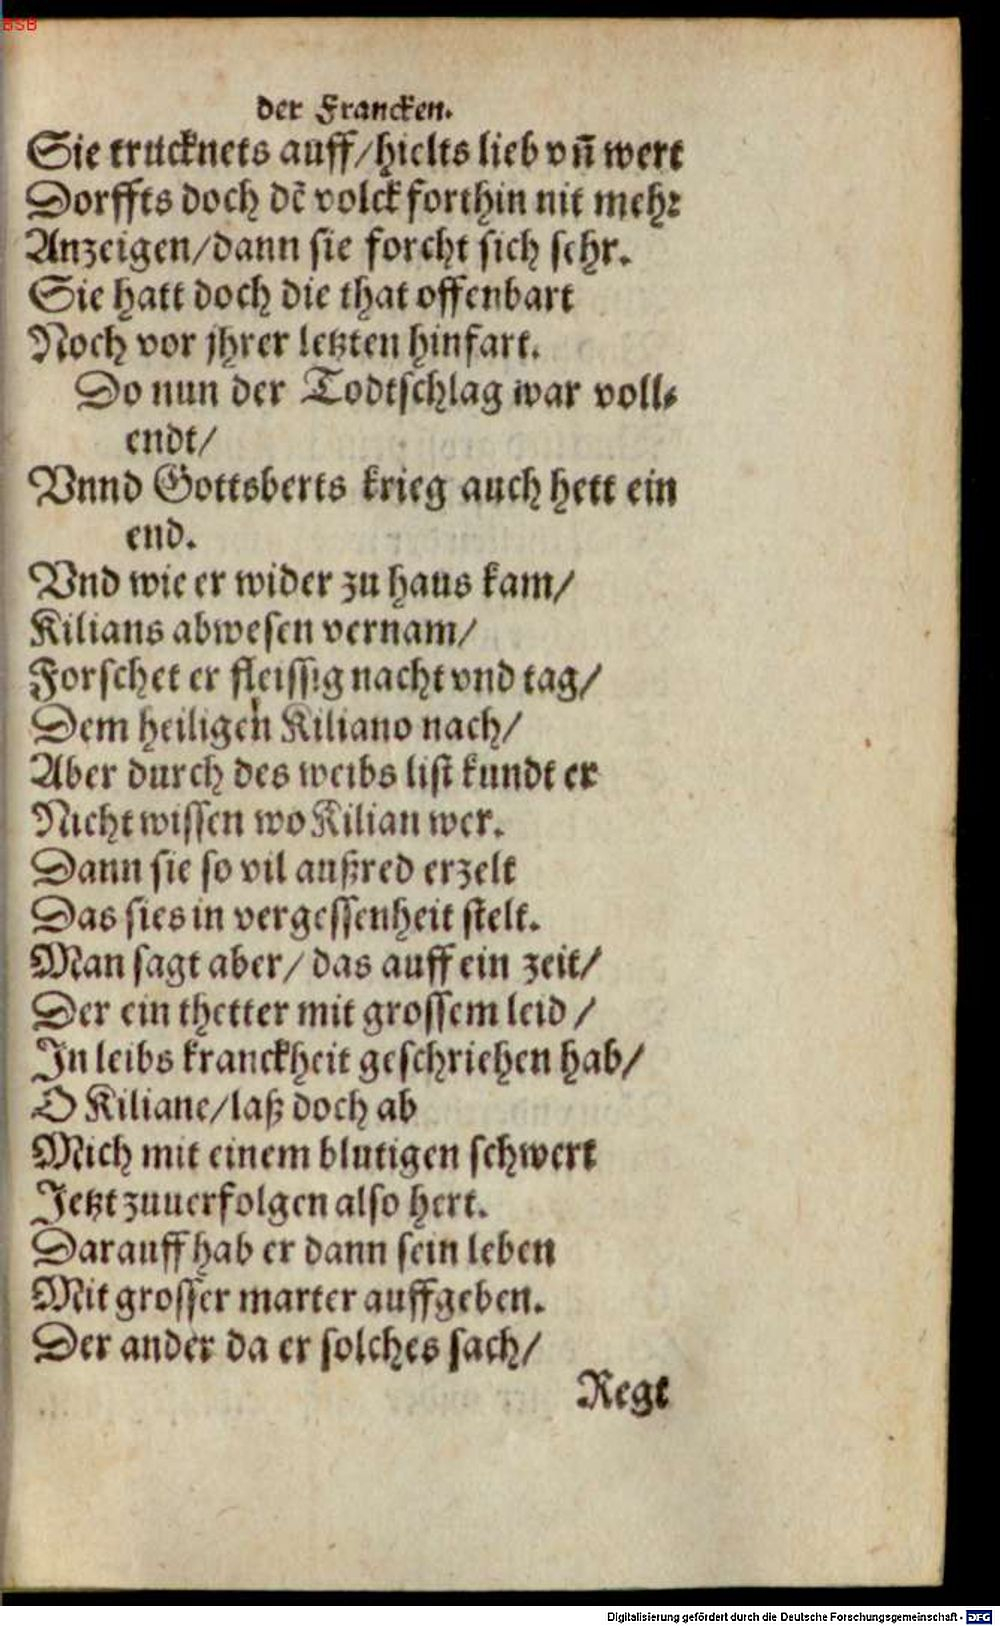 BSB
der Francken.
Sie trücknets auff/hielts lieb vn̄ wert
Dorffts doch dē volck forthin nit mehr
Anzeigen/dann sie forcht sich sehr.
Sie hatt doch die that offenbart
Noch vor jhrer letzten hinfart.
Do nun der Todtschlag war voll⸗
endt/
Vnnd Gottsberts krieg auch hett ein
end.
Vnd wie er wider zu haus kam/
Kilians abwesen vernam/
Forschet er fleissig nacht vnd tag/
Dem heiligen Kiliano nach/
Aber durch des weibs list kundt er
Nicht wissen wo Kilian wer.
Dann sie so vil außred erzelt
Das sies in vergessenheit stelt.
Man sagt aber/ das auff ein zeit/
Der ein thetter mit grossem leid /
In leibs kranckheit geschriehen hab/
O Kiliane/laß doch ab
Mich mit einem blutigen schwert
Jetzt zuuerfolgen also hert.
Darauff hab er dann sein leben
Mit grosser marter auffgeben.
Der ander da er solches sach/
Regt
Digitalisierung gefördert durch die Deutsche Forschungsgemeinschaft - DFG